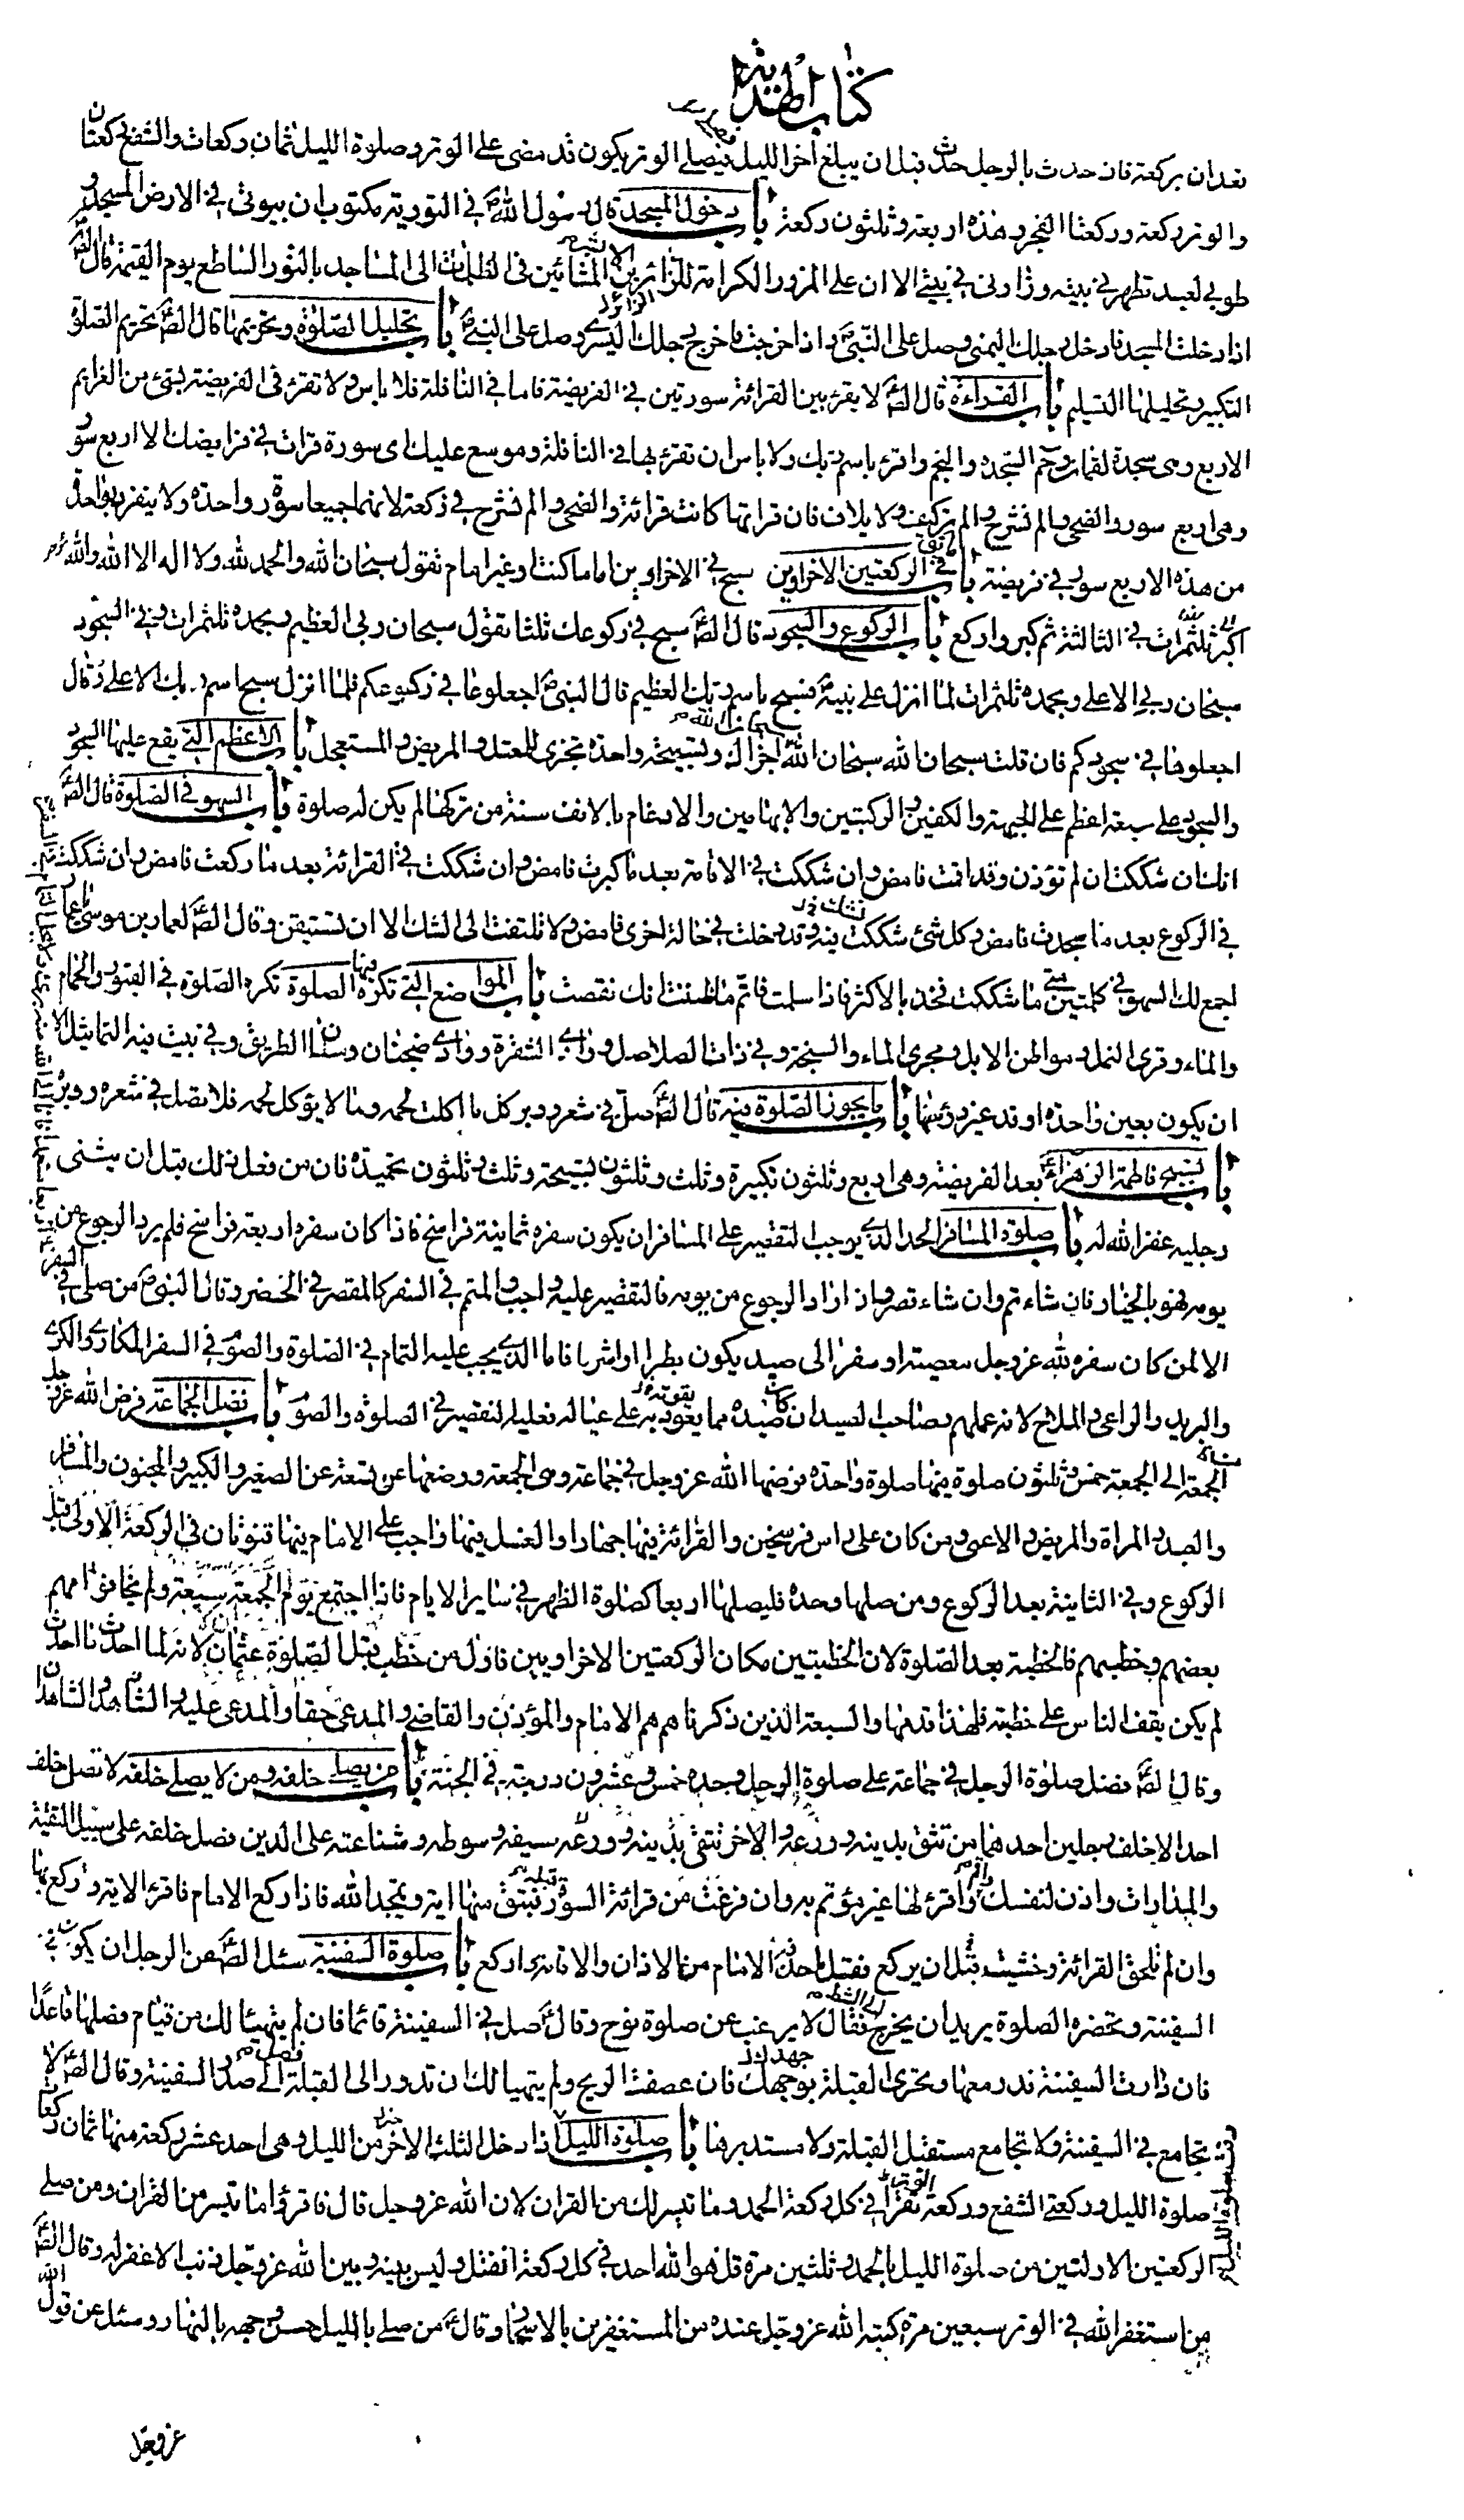 كتاب الهداية
تعدان بركعة فان حدث بالرجل حدث قبل ان يبلغ اخر الليل فيصلى الوتر يكون قد مضى على الوتر وصلوة الليل ثمان ركعات والشفع ركعتان
والوتر ركعة وركعتا الفجر وهذه اربعة وثلثون ركعة باب دخول المسجد قال رسول الله ص في التورية مكتوب ان بيوتى في الارض المسجد و
طوبى لعبد تطهر في بيته وزارنى في بيتى الا ان على المزور الكرامة للزائر الا بشر المشائين في الظلمات الى المساجد بالنور الساطع يوم القيمة قال الص
اذا دخلت المسجد فادخل رجلك اليمنى وصل على النبى ص واذا خرجت فاخرج رجلك اليسرى وصل على النبى ص باب تحليل الصلوة وتحريمها قال الص تحريم الصلوة
التكبير وتحليلها التسليم باب القراءة قال الص لا يقرء بين القرائة سورتين في الفريضة فاما في النافلة فلا باس ولا تقرء في الفريضة بشئ من العزايم
الاربع وهى سجدة لقمان وحم السجده والنجم واقرء باسم ربك ولا باس ان تقرء بها في النافلة وموسع عليك اى سورة قرات في فرايضك الا اربع سور
وهى اربع سور والضحى والم نشرح والم تركيف ولايلاف فان قراتها كانت قرائة والضحى والم نشرح في ركعة لانهما جميعا سورة واحدة ولا ينفرد بواحدة
من هذه الاربع سور في فريضة باب في الركعتين الاخراوين سبح في الاخراوين اماما كنت او غير امام تقول سبحان الله والحمد لله ولا اله الا الله والله
اكبر ثلثمرات في الثالثة ثم كبر واركع باب الركوع والسجود قال الص سبح في ركوعك ثلثا تقول سبحان ربى العظيم وبحمده ثلثمرات وفي السجود
سبحان ربى الاعلى وبحمده ثلثمرات لما انزل على نبيه فسبح باسم ربك العظيم قال النبى ص اجعلوها في ركوعكم فلما انزل سبح اسم ربك الاعلى قال
اجعلوها في سجودكم فان قلت سبحان الله سبحان الله سبحان الله اجزاك وتسبيحة واحدة تجزى للمعتل والمريض والمستعجل باب الاعظم التى يقع عليها السجود
والسجود على سبعة اعظم على الجبهة والكفين والركبتين والابهامين والارغام بالانف سنة من تركها لم يكن له صلوة باب السهو في الصلوة قال الص
انك ان شككت ان لم تؤذن وقد اقمت فامض وان شككت في الاقامة بعد ما كبرت فامض وان شككت في القرائة بعد ما ركعت فامض وان شككت
في الركوع بعد ما سجدت فامض وكل شئ شككت فيه وقد دخلت في حالة اخرى فامض ولا تلتفت الى الشك الا ان تستيقن وقال الص لعمار بن موسى يا عمار
اجمع لك السهو في كلمتين متى ما شككت فخذ بالاكثر فاذا سلمت فاتم ما ظننت انك نقصت باب المواضع التى تكره فيها الصلوة تكره الصلوة في القبور والحمام
والماء وقرى النمل ومواطن الابل ومجرى الماء والسبخة وفي ذات الصلاصل ووادى الشقرة ووادى ضجنان ومسان الطريق وفي بيت فيه التماثيل الا
ان يكون بعين واحدة او قد غير رؤسها باب ما يجوز الصلوة فيه قال الص صل في شعر ووبر كل ما اكلت لحمه وما لا يؤكل لحمه فلا تصل في شعره ووبره
باب تسبيح فاطمة الزهراء بعد الفريضة وهى اربع وثلثون تكبيرة وثلث وثلثون تسبيحة وثلث وثلثون تحميدة فان من فعل ذلك قبل ان يثنى
رجليه غفر الله له باب صلوة المسافر الحد الذى يوجب التقصير على المسافر ان يكون سفره ثمانية فراسخ فاذا كان سفره اربعة فراسخ فلم يرد الرجوع من
يومه فهو بالخيار فان شاء تم وان شاء قصر وان اراد الرجوع من يومه فالتقصير عليه واجب والمتم في السفر كالمقصر في الحضر وقال النبى ص من صلى في السفر
الا لمن كان سفره لله عز وجل معصية او سفرا الى صيد يكون بطرا او اشرا فاما الذى يجب عليه التمام في الصلوة والصوم في السفر المكارى والكرى
والبريد والراعى والملاح لانه عملهم وصاحب الصيد ان كان صيده مما يعود به على عياله فعليه التقصير في الصلوة والصوم باب فضل الجماعة فرض الله عز وجل
الجمعة الى الجمعة خمس وثلثون صلوة فيها صلوة واحدة فرضها الله عز وجل في جماعة وهى الجمعة ووضعها عن تسعة عن الصغير والكبير والمجنون والمسافر
والعبد والمراة والمريض والاعمى ومن كان على راس فرسخين والقرائة فيها جهارا والغسل فيها واجب على الامام فيها قنوتان في الركعة الاولى قبل
الركوع وفي الثانية بعد الركوع ومن صلها وحده فليصلها اربعا كصلوة الظهر في ساير الايام فاذا اجتمع يوم الجمعة سبعة ولم يخافوا امهم
بعضهم وخطبهم فالخطبة بعد الصلوة لان الخطبتين مكان الركعتين الاخراوين فاول من خطب قبل الصلوة عثمان لانه لما احدث ما احدث
لم يكن يقف الناس على خطبته فلهذا قدمها والسبعة الذين ذكرناهم هم الامام والمؤذن والقاضى والمدعى حقا والمدعى عليه والشاهدان
وقال الص فضل صلوة الرجل في جماعة على صلوة الرجل وحده خمس وعشرون درجة في الجنة باب من يصلى خلفه ومن لا يصلى خلفه لا تصل خلف
احد الا خلف رجلين احدهما من تثق بدينه وورعه والاخر تتقى سيفه وسوطه وشناعته على الدين فصل خلفه على سبيل التقية
والمدارات واذن لنفسك واقم واقرء لها غير مؤتم به وان فرغت من قرائة السورة قبله فتبق منها اية ومجد الله فاذا ركع الامام فاقرء الاية واركع بها
وان لم تلحق القرائة وخشيت قبل ان يركع فقل ما حذفه الامام من الاذان والاقامة واركع باب صلوة السفينة سئل الص عن الرجل ان يكون في
السفينة وتحضره الصلوة يريد ان يخرج الى الشط فقال لا يرغب عن صلوة نوح وقال صل في السفينة قائما فان لم يتهيئا لك من قيام فصلها قاعدا
فان دارت السفينة فدر معها وتحرى القبلة بوجهك جهدك فان عصفت الريح ولم يتهيا لك ان تدور الى القبلة فصل الى صدر السفينة وقال الص لا
تجامع في السفينة ولا تجامع مستقبل القبلة ولا مستدبرها باب صلوة الليل اذا دخل الثلث الاخر من الليل وهى احد عشر ركعة منها ثمان ركعات
صلوة الليل وركعتى الشفع وركعة الوتر تقرا في كل ركعة الحمد وما تيسر لك من القران لان الله عز وجل قال فاقرؤا ما تيسر من القران ومن صلى
الركعتين الاولتين من صلوة الليل بالحمد وثلثين مرة قل هو الله احد في كل ركعة انفتل وليس بينه وبين الله عز وجل ذنب الا غفر له وقال الص
من استغفر الله في الوتر سبعين مرة كتبه الله عز وجل عنده من المستغفرين بالاسحار وقال من صلى بالليل حسن وجهه بالنهار وسئل عن قول الله
عز وجل